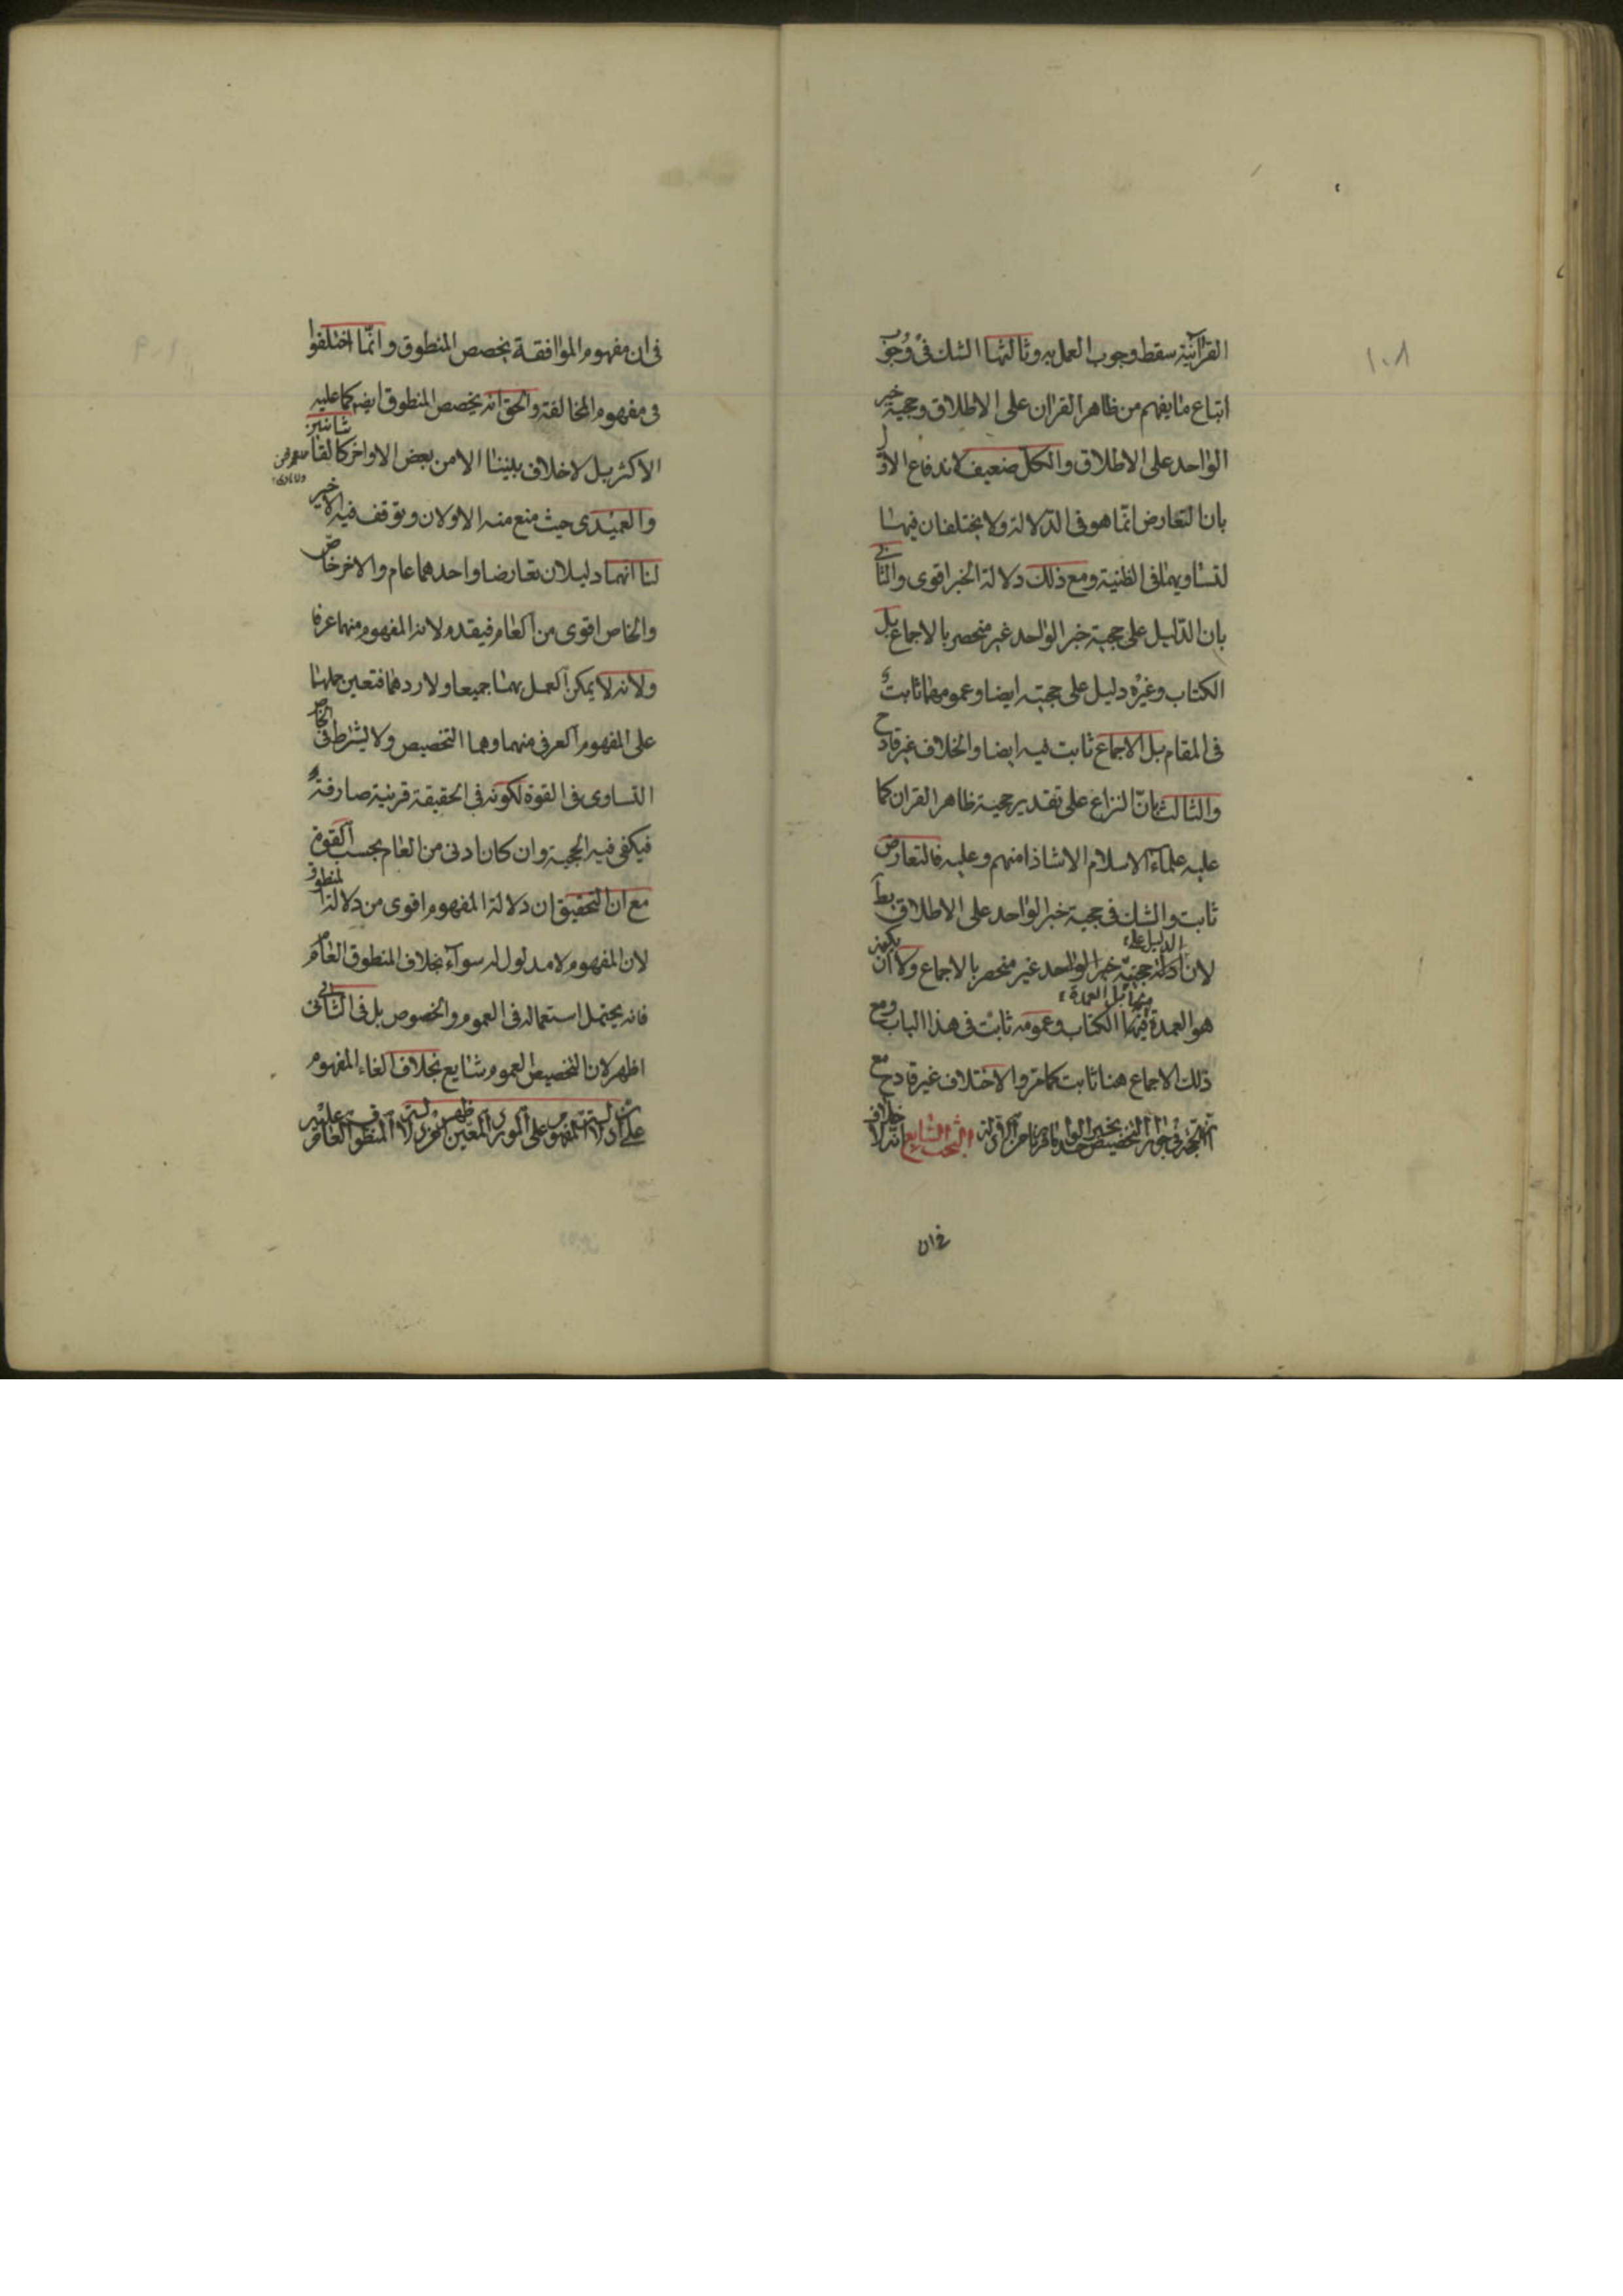 ١٠٨
القرآنية سقط وجوب العمل به وثالثها الشك في وجوب
اتباع ما يفهم من ظاهر القران على الاطلاق وحجية خبر
الواحد على الاطلاق والكل ضعيف لاندفاع الاول
بان التعارض انما هو فى الدلالة ولا يختلفان فيها
لتساويهما فى الظنية ومع ذلك دلالة الخبر اقوى والثانى
بان الدليل على حجية خبر الواحد غير منحصر بالاجماع بل
الكتاب وغيره دليل على حجيته ايضا وعمومهما ثابت
فى المقام بل الاجماع ثابت فيه ايضا والخلاف غير قادح
والثالث بان النزاع على تقدير حجية ظاهر القران كما
عليه علماء الاسلام الا شاذا منهم وعليه فالتعارض
ثابت والشك فى حجية خبر الواحد على الاطلاق بط
الدليل على
لان ادلة حجية خبر الواحد غير منحصر بالاجماع ولا ان يكون
هو العمدة فيها الكتاب وعمومه ثابت فى هذا الباب ومع
منها بل العمدة
ذلك الاجماع هنا ثابت كما مر والاختلاف غير قادح مع
البحث السابع انه لا خلاف
فى ان
فى ان مفهوم الموافقة يخصص المنطوق وانما اختلفوا
فى مفهوم المخالفة والحق انه يخصص المنطوق ايضا كما عليه
الاكثر بل لا خلاف بيننا الا من بعض الاواخر كالقاسانيين
والعميدى حيث منع منه الاولان وتوقف فيه الاخير
لنا انهما دليلان تعارضا واحدهما عام والاخر خاص
والخاص اقوى من العام فيقدم لانه المفهوم منهما عرفا
ولانه لا يمكن العمل بهما جميعا ولا ردهما فتعين حملهما
على المفهوم العرفى منهما وهما التخصيص ولا يشترط فى الخاص
التساوى فى القوة لكونه فى الحقيقة قرينة صارفة
فيكفى فيه الحجية وان كان ادنى من العام بحسب القوة
مع ان التحقيق ان دلالة المفهوم اقوى من دلالة المنطوق
لان المفهوم لا مدلول له سواء بخلاف المنطوق العام
فانه يحتمل استعماله فى العموم والخصوص بل فى الثانى
اظهر لان تخصيص العموم شايع بخلاف الغاء المفهوم
على ان دلالة المفهوم على المورد المعين اظهر من دلالة المنطوق العام عليه